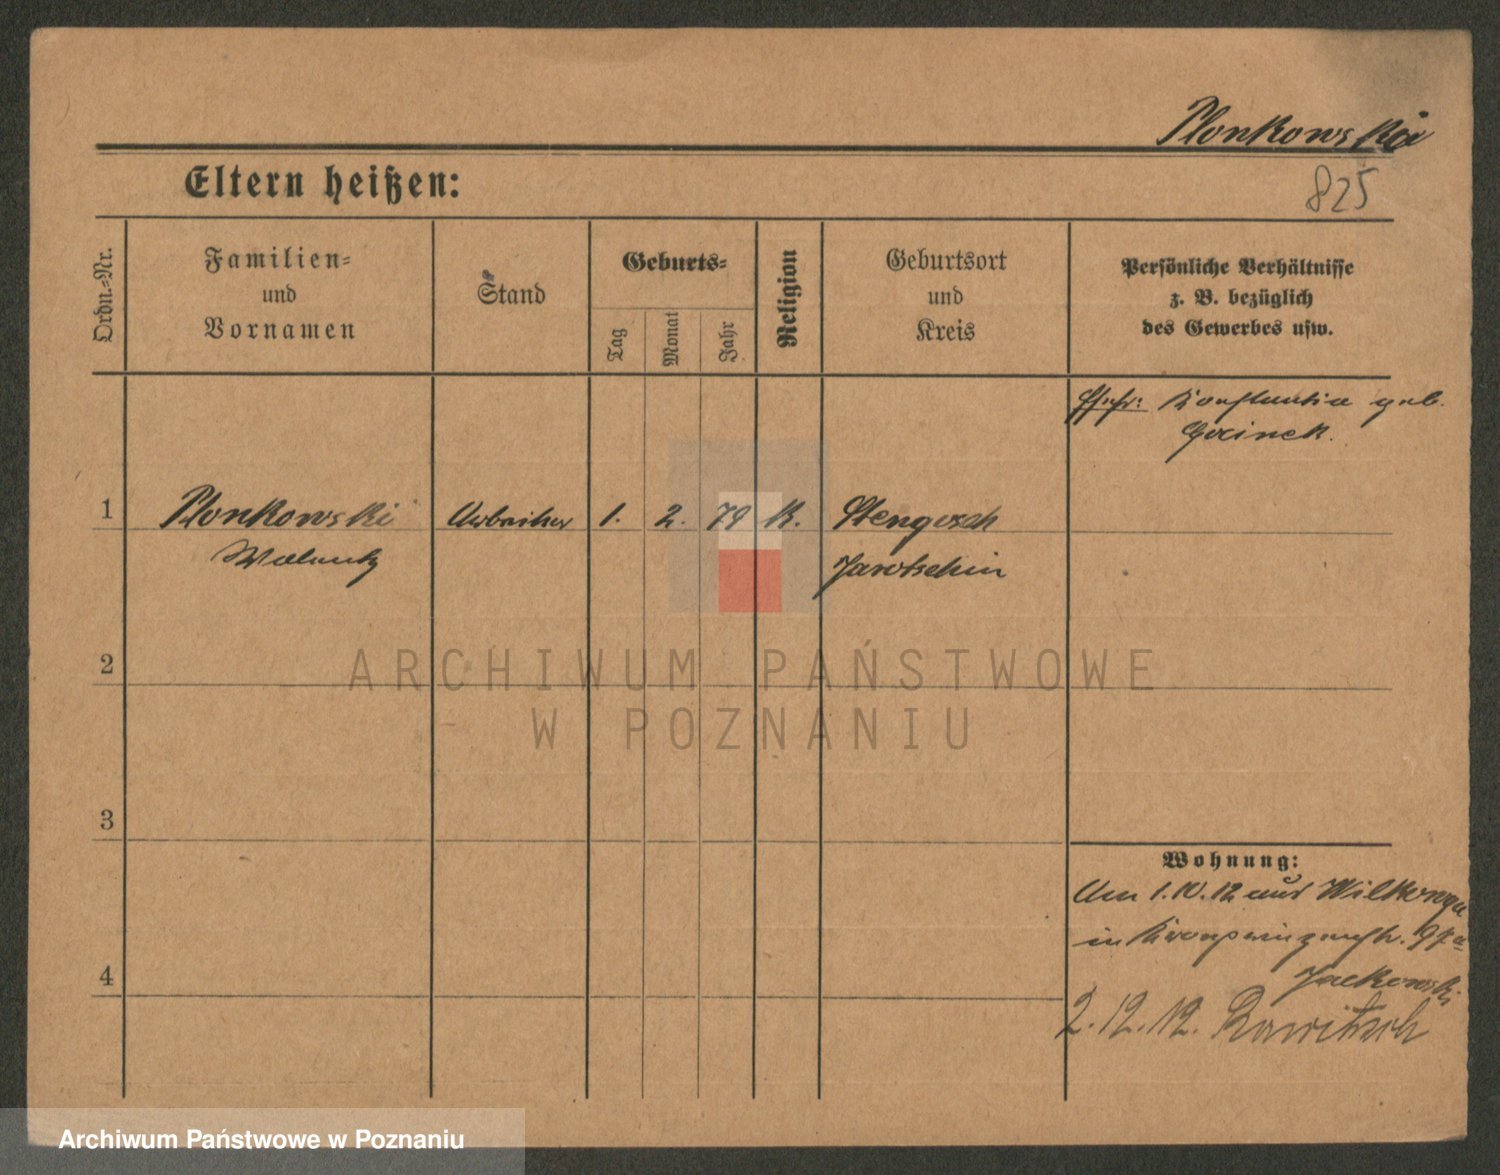 Plonkowski
825
Eltern heißen:
Ordn.-Nr.
Familien-
und
Vornamen
Stand
Geburts-
Tag
Monat
Jahr
Religion
Geburtsort
und
Kreis
Persönliche Verhältnisse
z. B. bezüglich
des Gewerbes usw.
Ehefr: Konstantia geb.
1 Plonkowski Arbeiter 1. 2. 79 K. Stengosch
Walenty Jarotschin
2
3
4
Wohnung:
Am 1.10.12 aus
in Kronprinzenstr.
Jackowski
2.12.12. Rawitsch
ARCHIWUM PAŃSTWOWE
W POZNANIU
Archiwum Państwowe w Poznaniu